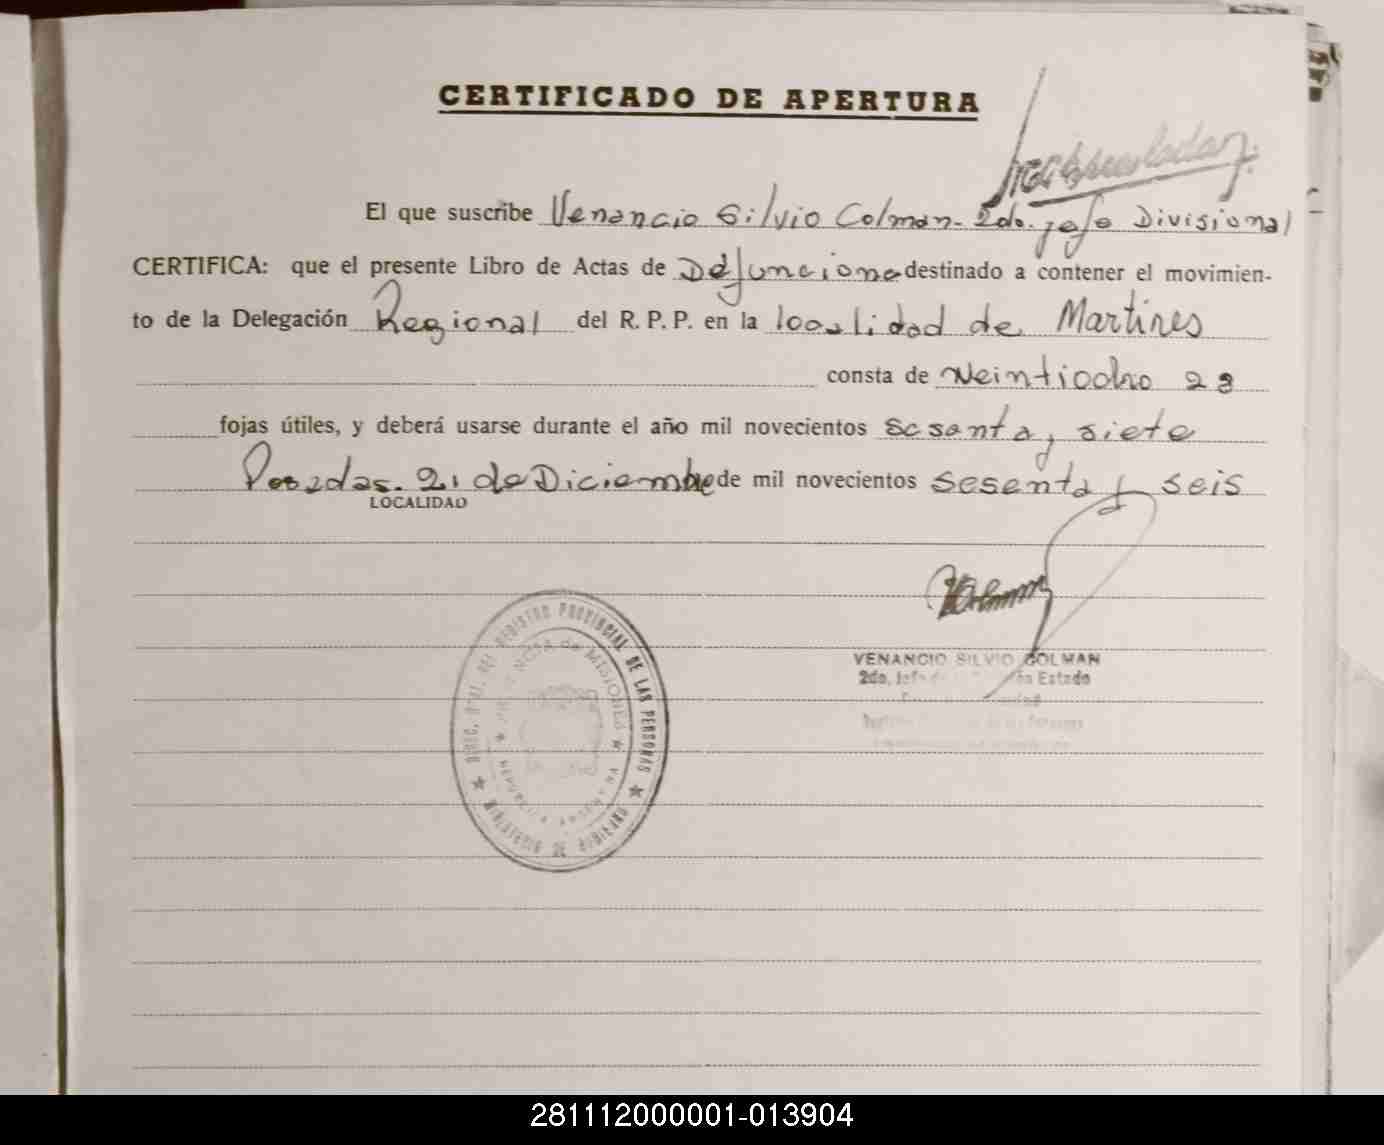 CERTIFICADO DE APERTURA
El que suscribe Venancio Silvio Colman - 2do. jefe Divisional
CERTIFICA: que el presente Libro de Actas de Defuncione destinado a contener el movimien-
to de la Delegación Regional del R. P. P. en la localidad de Martires
consta de Veintiocho 28
fojas útiles, y deberá usarse durante el año mil novecientos sesenta y siete
Posadas. 21 de Diciembre de mil novecientos sesenta y seis
LOCALIDAD
DIREC. GRAL. DEL REGISTRO PROVINCIAL DE LAS PERSONAS
PROVINCIA de MISIONES
REPUBLICA ARGENTINA
VENANCIO SILVIO COLMAN
2do. Jefe Estado
281112000001-013904